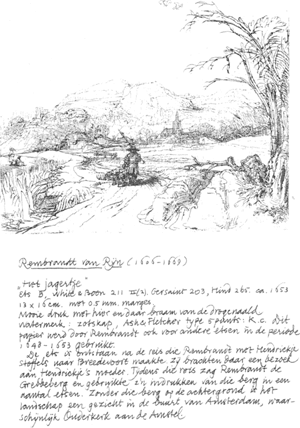 Rembrandt van Rijn (1606-1669)
„Het jagertje"
Ets B, White & Boon 211 II(2), Gersaint 203, Hind 265. ca. 1653
13 x 16 cm met 0.5 mm. marges
Mooie druk met hier en daar braam van de drogenaald
Watermerk: zotskap, Ash & Fletcher type K.c. Dit
papier werd door Rembrandt ook voor andere etsen in de periode
1648-1653 gebruikt.
De ets is ontstaan na de reis die Rembrandt met Hendrickje
Stoffels naar Breedevoort maakte. Zij brachten daar een bezoek
aan Hendrickje's moeder. Tijdens die reis zag Rembrandt de
Grebbeberg en gebruikte z'n indrukken van die berg in een
aantal etsen. Zonder die berg op de achtergrond is het
landschap een gezicht in de buurt van Amsterdam, waar-
schijnlijk Ouderkerk aan de Amstel